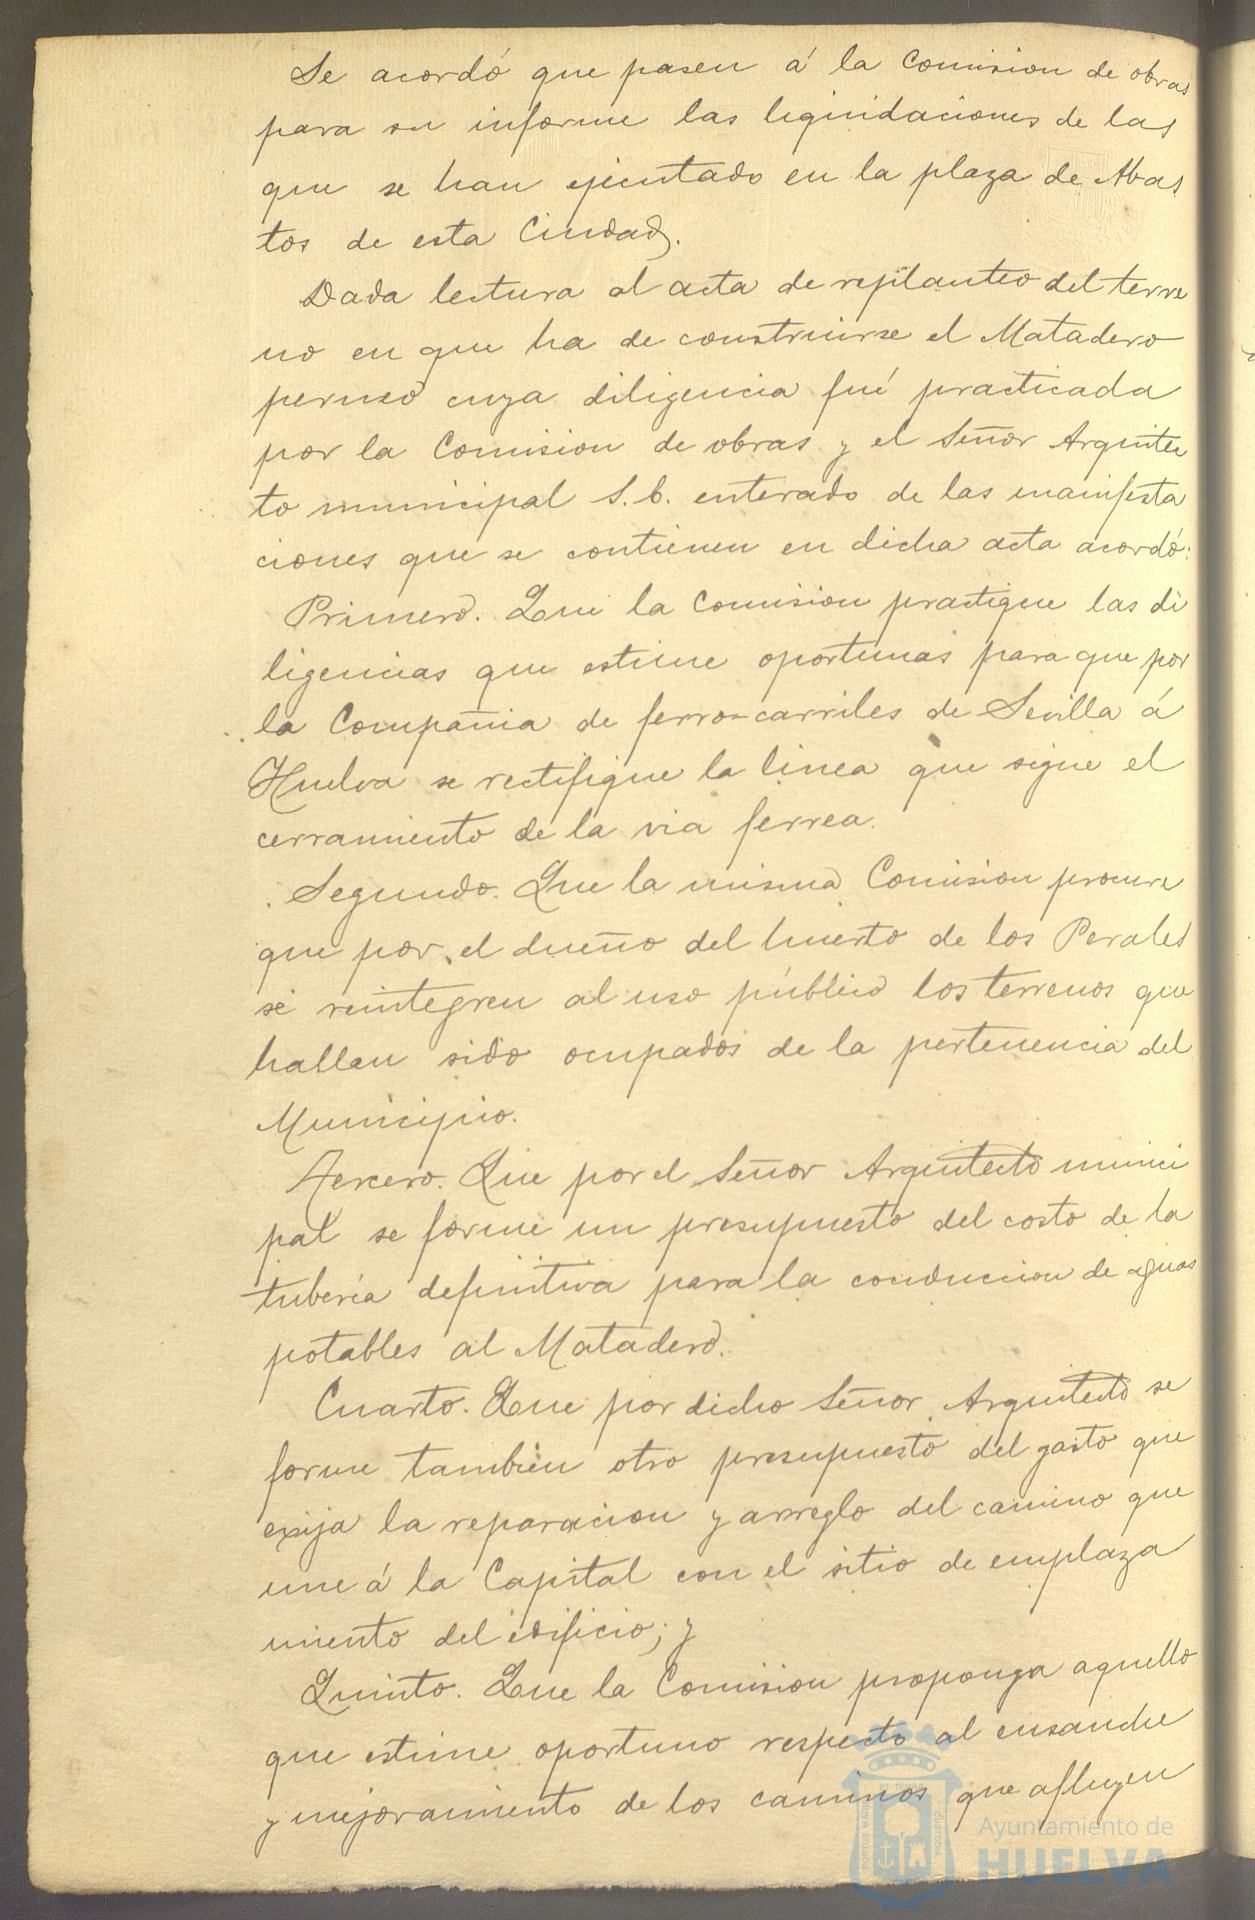 Se acordó que pasen á la Comision de obras
para su informe las liquidaciones de las
que se han ejecutado en la plaza de Abas
tos de esta Ciudad.
Dada lectura al acta de replanteo del terre
no en que ha de construirse el Matadero
permco cuya diligencia fué practicada
por la Comision de obras y el Señor Arquitec
to municipal S.E. enterado de las manifesta
ciones que se contienen en dicha acta acordó:
Primero. Que la Comision practique las di
ligencias que estime oportunas para que por
la Compañia de ferro-carriles de Sevilla á
Huelva se rectifique la linea que sigue el
cerramiento de la via ferrea.
Segundo. Que la misma Comision procure
que por el dueño del huerto de los Perales
se reintegren al uso público los terrenos que
hallan sido ocupados de la pertenencia del
Municipio.
Tercero. Que por el Señor Arquitecto munici
pal se forme un presupuesto del costo de la
tubería definitiva para la conduccion de aguas
potables al Matadero.
Cuarto. Que por dicho Señor Arquitecto se
forme tambien otro presupuesto del gasto que
exija la reparacion y arreglo del camino que
une á la Capital con el sitio de emplaza
miento del edificio; y
Quinto. Que la Comision proponga aquello
que estime oportuno respecto al ensanche
y mejoramiento de los caminos que afluyen
Ayuntamiento de
HUELVA